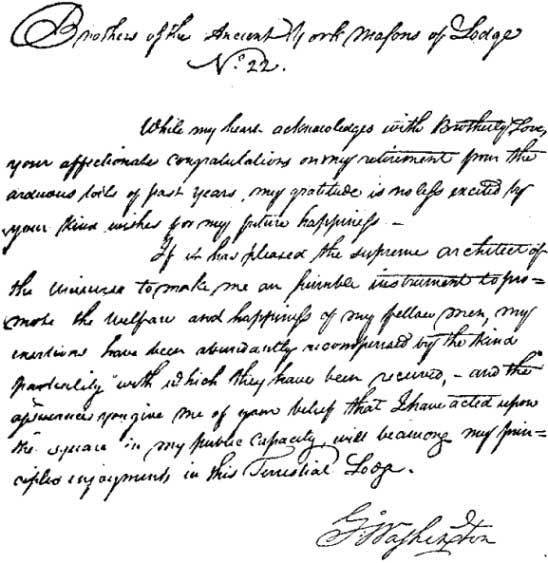 Brothers of the Ancient York Masons of Lodge
No. 22.
While my heart acknowledges with Brotherly Love,
your affectionate congratulations on my retirement from the
arduous toils of past years, my gratitude is no less excited by
your kind wishes for my future happiness –
If it has pleased the supreme architect of
the Universe to make me an humble instrument to pro=
mote the welfare and happiness of my fellow men, my
exertions have been abundantly recompensed by the kind
partiality with which they have been received, – and the
assurances you give me of your belief that I have acted upon
the square in my public capacity, will be among my prin=
cipal enjoyments in this Terrestial Lodge.
G. Washington